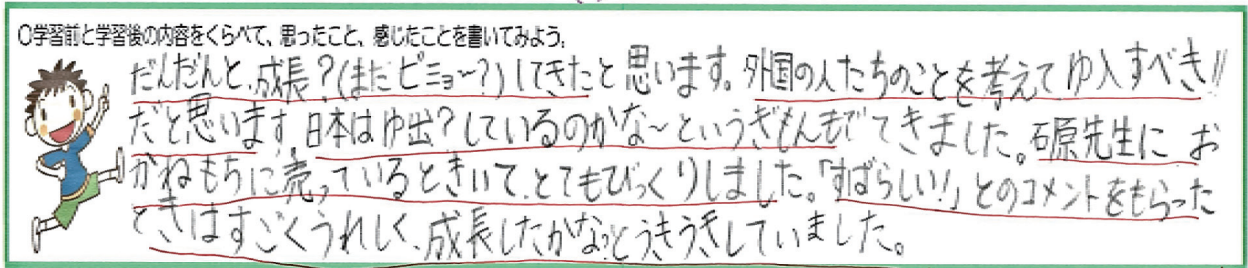 ○学習前と学習後の内容をくらべて、思ったこと、感じたことを書いてみよう。
だんだんと、成長？(まだビミョ〜？)してきたと思います。外国の人たちのことを考えてゆ入すべき!!
だと思います。日本はゆ出？しているのかな〜というぎもんもでてきました。石原先生に お
かねもちに売っているときいて、とてもびっくりしました。「すばらしい！」とのコメントをもらった
ときはすごくうれしく、成長したかなっとうきうきしていました。